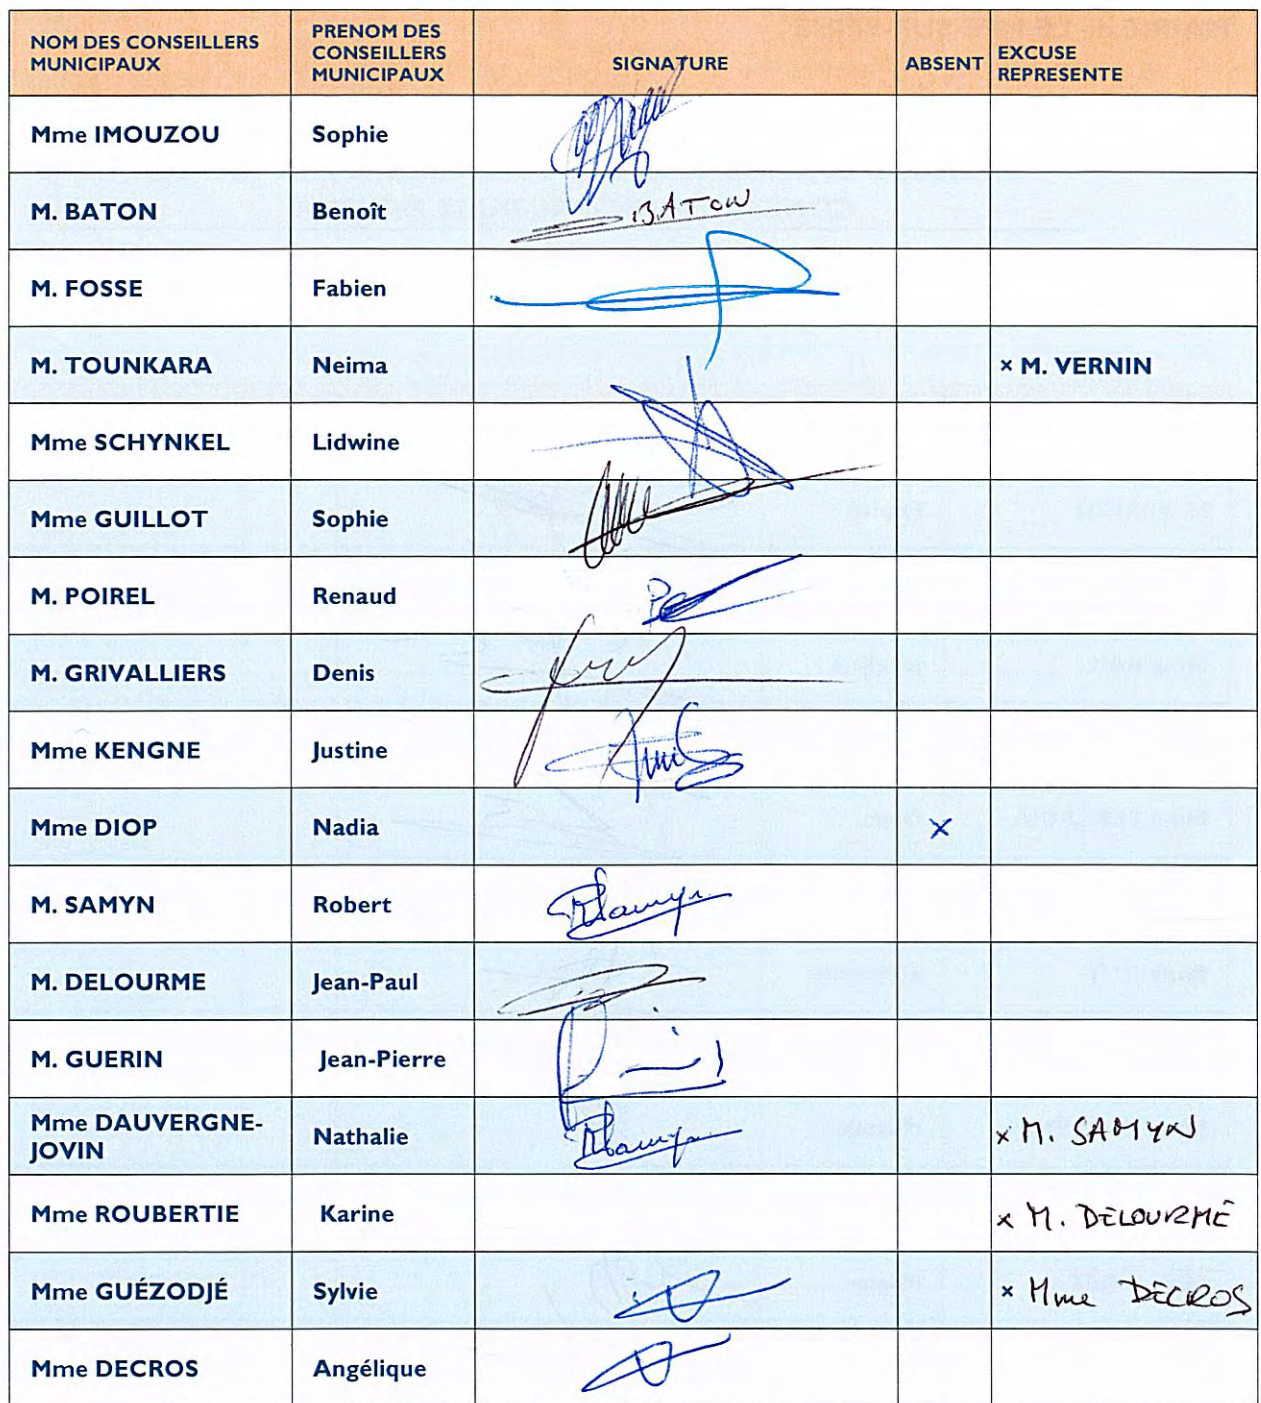 NOM DES CONSEILLERS MUNICIPAUX PRENOM DES CONSEILLERS MUNICIPAUX SIGNATURE ABSENT EXCUSE REPRESENTE
Mme IMOUZOU Sophie
M. BATON Benoît BATON
M. FOSSE Fabien
M. TOUNKARA Neima × M. VERNIN
Mme SCHYNKEL Lidwine
Mme GUILLOT Sophie
M. POIREL Renaud
M. GRIVALLIERS Denis
Mme KENGNE Justine
Mme DIOP Nadia ×
M. SAMYN Robert
M. DELOURME Jean-Paul
M. GUERIN Jean-Pierre
Mme DAUVERGNE-JOVIN Nathalie × M. SAMYN
Mme ROUBERTIE Karine × M. DELOURME
Mme GUÉZODJÉ Sylvie × Mme DECROS
Mme DECROS Angélique